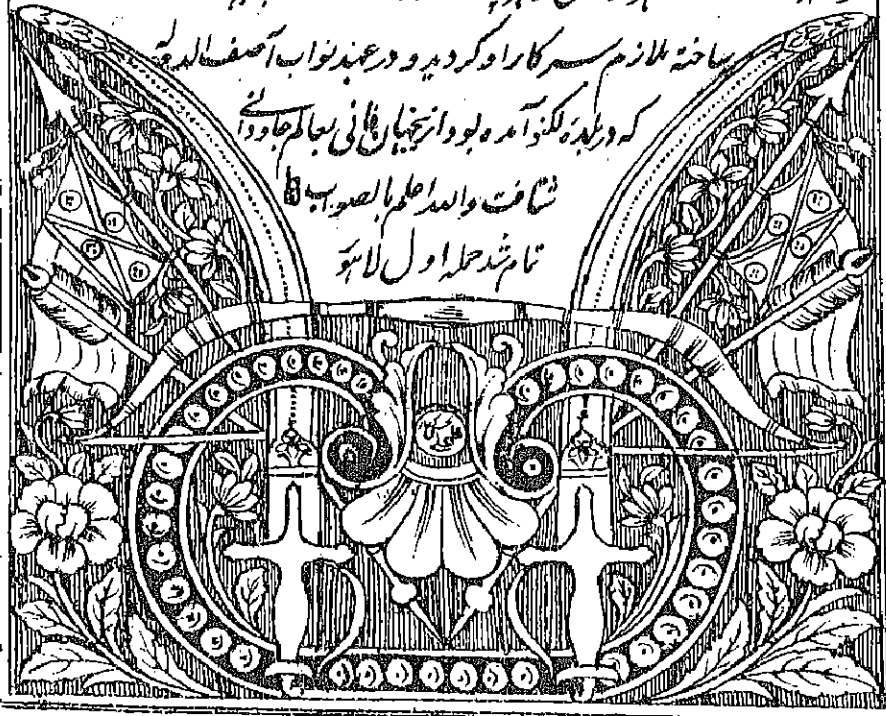 ساخته ملازم سرکار او گردید و در عهد نواب آصف الدوله
که در بلده لکهنؤ آمده بود ازینجهان فانی بعالم جاودانی
شتافت والله اعلم بالصواب
تمام شد حمله اول